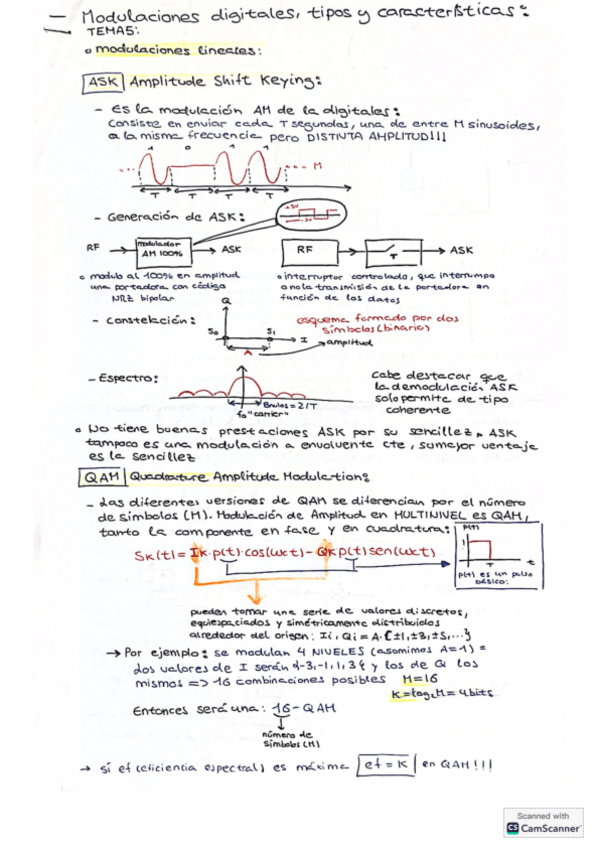 Modulaciones digitales, tipos y características:
TEMA5:
modulaciones lineales:
ASK Amplitude Shift Keying:
- Es la modulación AM de la digitales:
Consiste en enviar cada T segundos, una de entre M sinusoides,
a la misma frecuencia pero DISTINTA AMPLITUD!!!
1 0 1 1
... ... M
T T T T
- Generación de ASK:
+5V
-5V
RF modulador AM 100% ASK
RF T ASK
modulo al 100% en amplitud
una portadora con código
NRZ bipolar
interruptor controlado, que interrumpe
o no la transmisión de la portadora en
función de los datos
- Constelación:
Q
S0 S1 I
A
esquema formado por dos
símbolos (binario)
→ amplitud
- Espectro:
Bnulos = 2/T
f0 "carrier"
Cabe destacar que
la demodulación ASK
solo permite de tipo
coherente
No tiene buenas prestaciones ASK por su sencillez, ASK
tampoco es una modulación a envolvente cte, su mejor ventaje
es la sencillez
QAM Quadrature Amplitude Modulation:
- Las diferentes versiones de QAM se diferencian por el número
de símbolos (M). Modulación de Amplitud en MULTINIVEL es QAM,
tanto la componente en fase y en cuadratura:
Sk(t) = Ik·p(t)·cos(wct) - Qkp(t)sen(wct)
p(t)
1
T t
p(t) es un pulso
básico:
pueden tomar una serie de valores discretos,
equiespaciados y simétricamente distribuidos
alrededor del origen: Ii, Qi = A·{±1, ±3, ±5, ...}
→ Por ejemplo: se modulan 4 NIVELES (asomimos A=1) =
Los valores de I serán {-3,-1,1,3} y los de Q los
mismos => 16 combinaciones posibles M=16
K=log2M = 4bits
Entonces será una: 16-QAM
número de
símbolos (M)
→ si ef (eficiencia espectral) es máxima ef = K en QAM!!!
Scanned with
CS CamScanner